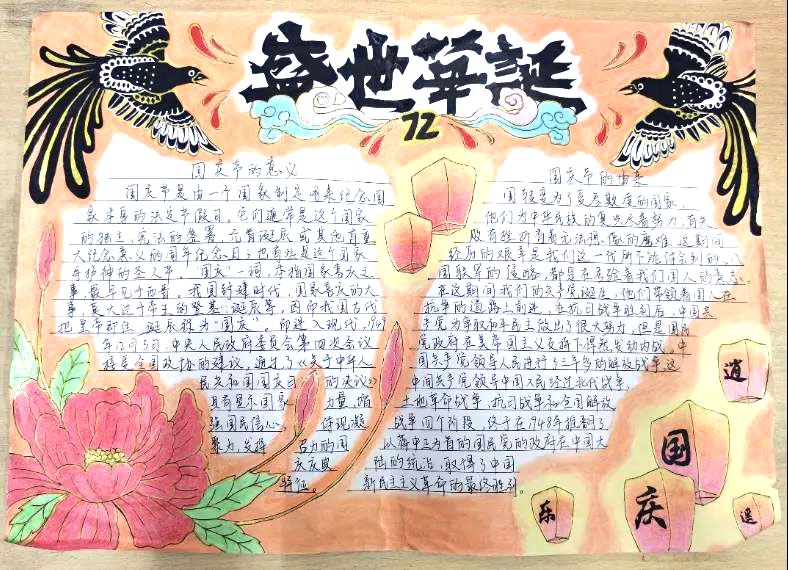 盛世華誕
72
国庆节的意义
国庆节是由一个国家制定用来纪念国
家本身的法定节假日。它们通常是这个国家
的独立、宪法的签署、元首诞辰或其他有重
大纪念意义的周年纪念日；也有些是这个国家
守护神的圣人节！"国庆"一词，本指国家喜庆之
事，最早见于西晋。我国封建时代，国家喜庆的大
事，莫大过于帝王的登基、诞辰等。因而我国古代
把皇帝即位、诞辰称为"国庆"。而进入现代，1949
年12月3日，中央人民政府委员会第四次会议
接受全国政协的建议，通过了《关于中华人
民共和国国庆日的决议》
具有显示国家力量、增
强国民信心，体现凝
聚力，发挥号召力的国
庆庆典
特征。
国庆节的由来
国
他们为中华民族的复兴尽着努力，有失
败有挫折有着无法想像的磨难，这期间
经历的艰辛是我们这一代所下
国联军的侵略，都是在考验着我们国人的意志。
在这期间我们的共产党诞生，他们带领着国人在
抗争的道路上前进，在抗日战争胜利后，中国共
产党为争取和平民主做出了很大努力，但是国民
党政府在美帝国主义支持下悍然发动内战。中
国共产党领导人民进行了三年多的解放战争，这
中间共产党领导中国人民经过北伐战争、
土地革命战争、抗日战争和全国解放
战争四个阶段，终于在1948年推翻了
以蒋中正为首的国民党的政府在中国大
陆的统治，取得了中国
新民主主义革命的最终胜利。
逍
国
乐
庆
遥